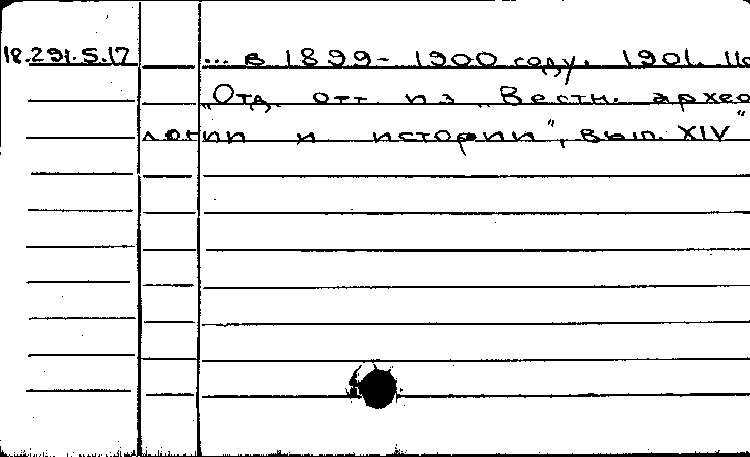 18.291.5.17 ... в 1899-1900 году. 1901.
„Отд. отт из „Вестн. архео
логии и истории", вып. XIV"